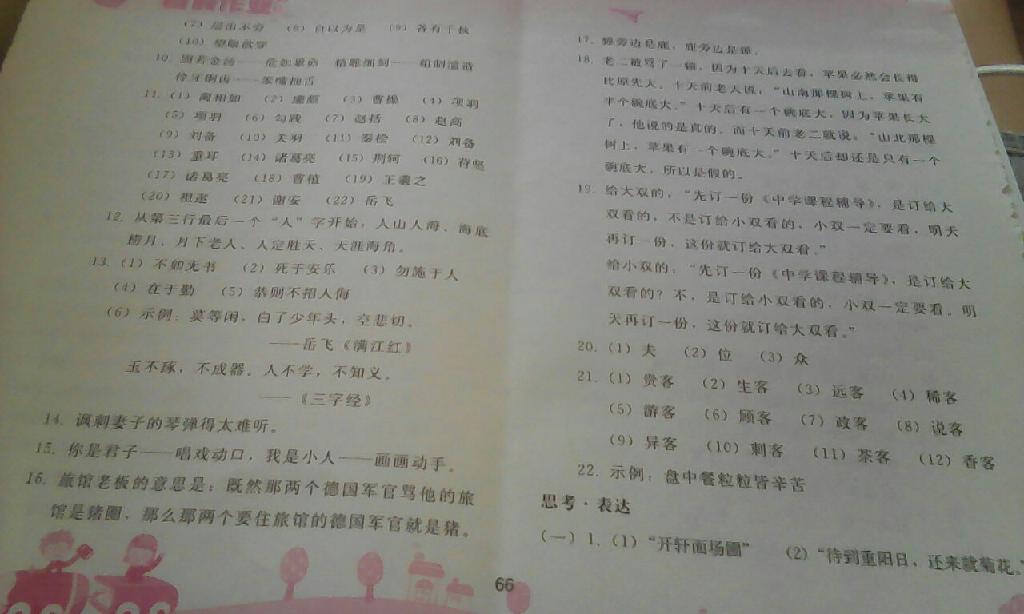 (7) 层出不穷 (8) 自以为是 (9) 各有千秋
(10) 望眼欲穿
11. (1) 蔺相如 (2) 廉颇 (3) 曹操 (4) 项羽
(5) 项羽 (6) 勾践 (7) 赵括 (8) 赵高
(9) 刘备 (10) 关羽 (11) 秦桧 (12) 刘备
(13) 重耳 (14) 诸葛亮 (15) 荆轲 (16) 苻坚
(17) 诸葛亮 (18) 曹植 (19) 王羲之
(20) 祖逖 (21) 谢安 (22) 岳飞
12. 从第三行最后一个“人”字开始,人山人海、海底
捞月、月下老人、人定胜天、天涯海角。
13. (1) 不如无书 (2) 死于安乐 (3) 勿施于人
(4) 在于勤 (5) 恭则不招人侮
(6) 示例:莫等闲,白了少年头,空悲切。
——岳飞《满江红》
玉不琢,不成器。人不学,不知义。
——《三字经》
14. 讽刺妻子的琴弹得太难听。
15. 你是君子——唱戏动口,我是小人——画画动手。
16. 旅馆老板的意思是:既然那两个德国军官骂他的旅
馆是猪圈,那么那两个要住旅馆的德国军官就是猪。
66
17. 獐旁边是鹿,鹿旁边是獐。
18. 老二被骂了一顿,因为十天后去看,苹果必然会长得
比原先大。十天前老人说:“山南那棵树上,苹果有
半个碗底大。”十天后有一个碗底大,因为苹果长大
了,他说的是真的。而十天前老二就说:“山北那棵
树上,苹果有一个碗底大。”十天后却还是只有一个
碗底大,所以是假的。
19. 给大双的,“先订一份《中学课程辅导》,是订给大
双看的,不是订给小双看的,小双一定要看,明天
再订一份,这份就订给大双看。”
给小双的:“先订一份《中学课程辅导》,是订给大
双看的?不,是订给小双看的,小双一定要看。明
天再订一份,这份就订给大双看。”
20. (1) 夫 (2) 位 (3) 众
21. (1) 贵客 (2) 生客 (3) 远客 (4) 稀客
(5) 游客 (6) 顾客 (7) 政客 (8) 说客
(9) 异客 (10) 刺客 (11) 茶客 (12) 香客
22. 示例:盘中餐粒粒皆辛苦
思考·表达
(一) 1. (1) “开轩面场圃” (2) “待到重阳日,还来就菊花。”